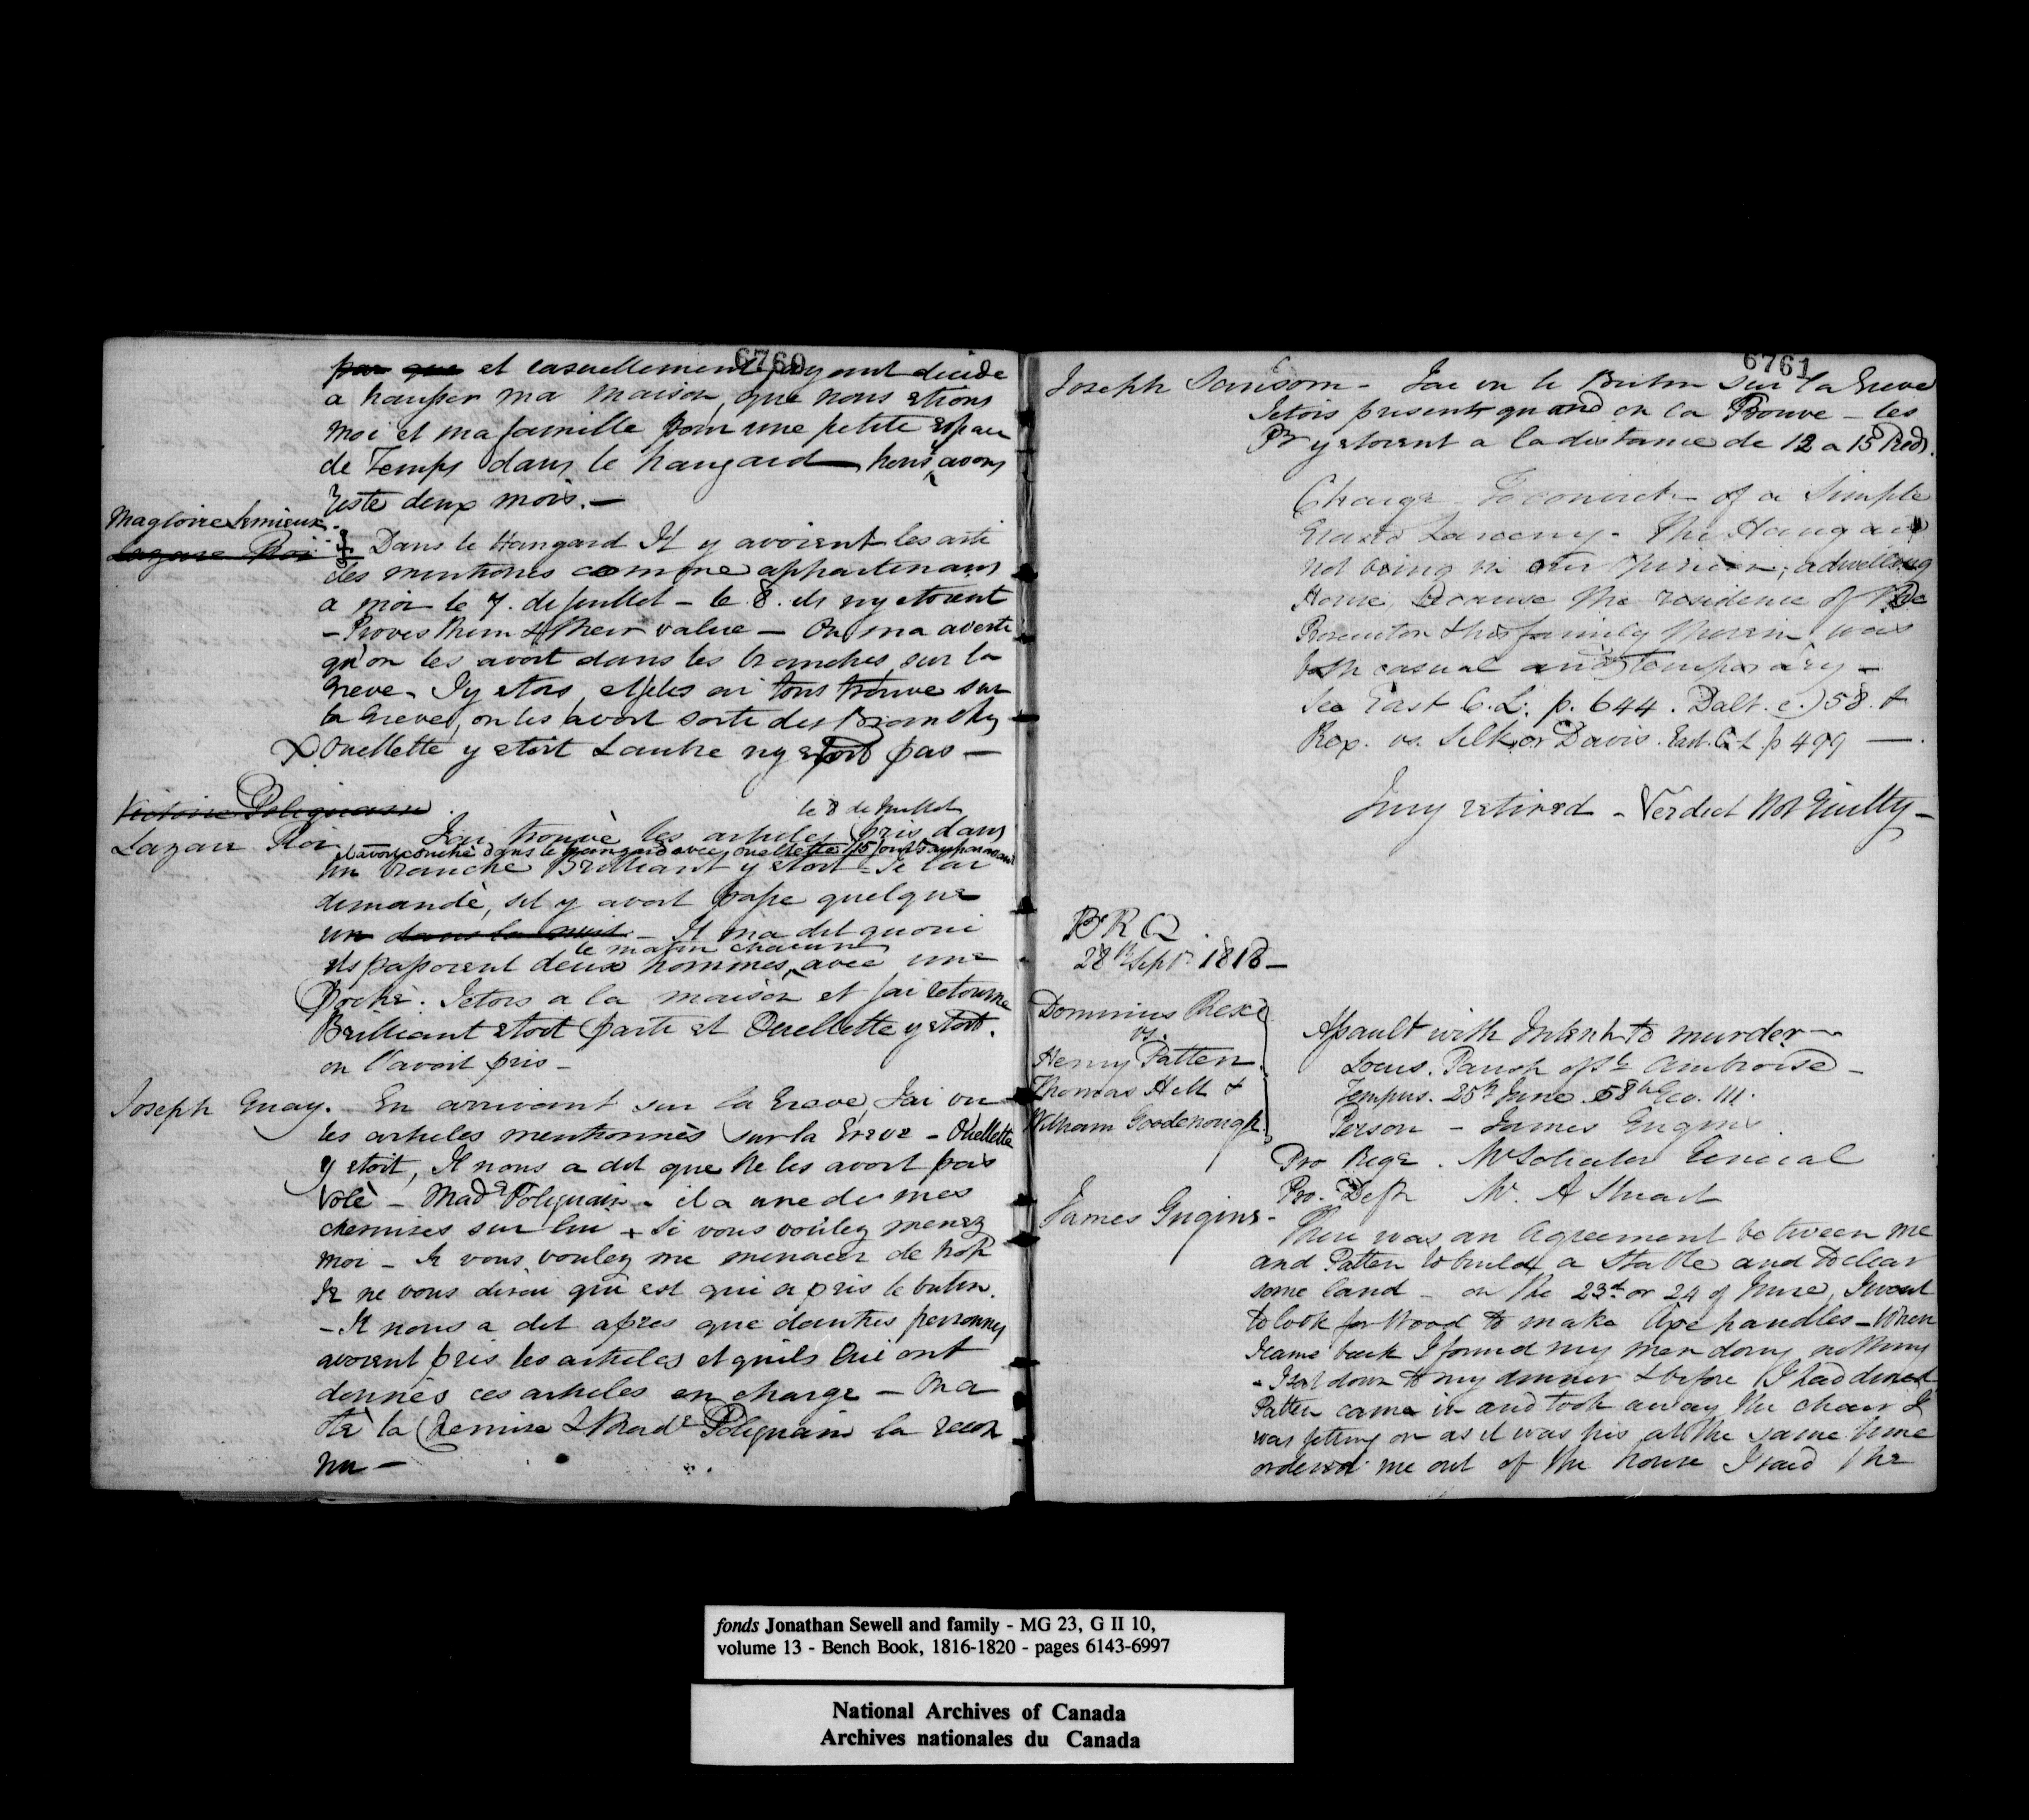 6760
par que et casuellement ayant decidé
a hausser ma maison, que nous etions
moi et ma famille pour une petite espace
de Temps dans le hangard nous avons
resté deux mois. —
Magloire Lemieux.
Lazare Roi
Dans le Hangard Il y avoient les arti
cles mentionés comme appartenans
a moi le 7. de Juillet — le 8. ils ny etoient
— Proves them & their value — On m'a averti
qu'on les avoit dans les branches sur la
Greve. J'y etois, et les ai tous trouvé sur
la Greve, on les avoit sorti des Branches
Ouellette y etoit L'autre ny etoit pas —
Victoire Poliquain
le 8 de Juillet
Lazare Roi — J'ai trouvé les articles pris dans
dans le hangard avec Ouellette 15 jours
un branche Brilliant y etoit — Je l'ai
demandé, sil y avoit passé quelque
un dans la nuit — Il m'a dit quoui
le matin chacun
ils passoient deux hommes, avec une
Poche. Jetois a la maison et j'ai retourné
Brilliant etoit parti et Ouellette y etoit.
on l'avoit pris —
Joseph Guay. En arrivant sur la Greve, J'ai vu
les articles mentionnés sur la Greve — Ouellette
y etoit, Il nous a dit que ne les avoit pas
volé — Made Poliquain — il a une de mes
chemises sur lui + Si vous voulez menez
moi — Si vous voulez me menacer de
Je ne vous dirai qui est qui a pris le butin.
— Il nous a dit apres que dautres personnes
avoient pris les articles et quils lui ont
donnés ces articles en charge — On a
oté la Chemise & Made Poliquain la recon
nu —
6761
Joseph Sansom — J'ai vu le Butin sur la Greve
Jetois present quand on la Trouvé — les
Prs y etoient a la distance de 12 a 15 Pieds.
Charge — To convict of a Simple
Grand Larceny — The Hangard
not being in our opinion, a dwelling
House, because the residence of the
Prosecutor & his family therein was
both casual and temporary —
See East C.L. p. 644. Dalt. c. 58. &
Rex. vs. Silk or Davis. East. C.L. p 499 —
Jury retired — Verdict Not Guilty —
B R Q.
28th Septr 1818 —
Dominus Rex
vs.
Henry Patten
Thomas Hill &
William Goodenough.
Assault with Intent to murder —
Locus. Parish of St Ambroise —
Tempus. 25th June 58th Geo. III.
Person — James Gugins
Pro Rege. Mr Solicitor General
Pro. Deft Mr. A Stuart
James Gugins —
There was an agreement between me
and Patten to build a Stable and to clear
some land — on the 23d or 24 of June, I went
to look for Wood to make Axe handles — When
I came back I found my men doing nothing
— I sat down to my dinner & before I had dined
Patten came in and took away the chair I
was sitting on as it was his at the same time
ordered me out of the house I said the
fonds Jonathan Sewell and family - MG 23, G II 10,
volume 13 - Bench Book, 1816-1820 - pages 6143-6997
National Archives of Canada
Archives nationales du Canada